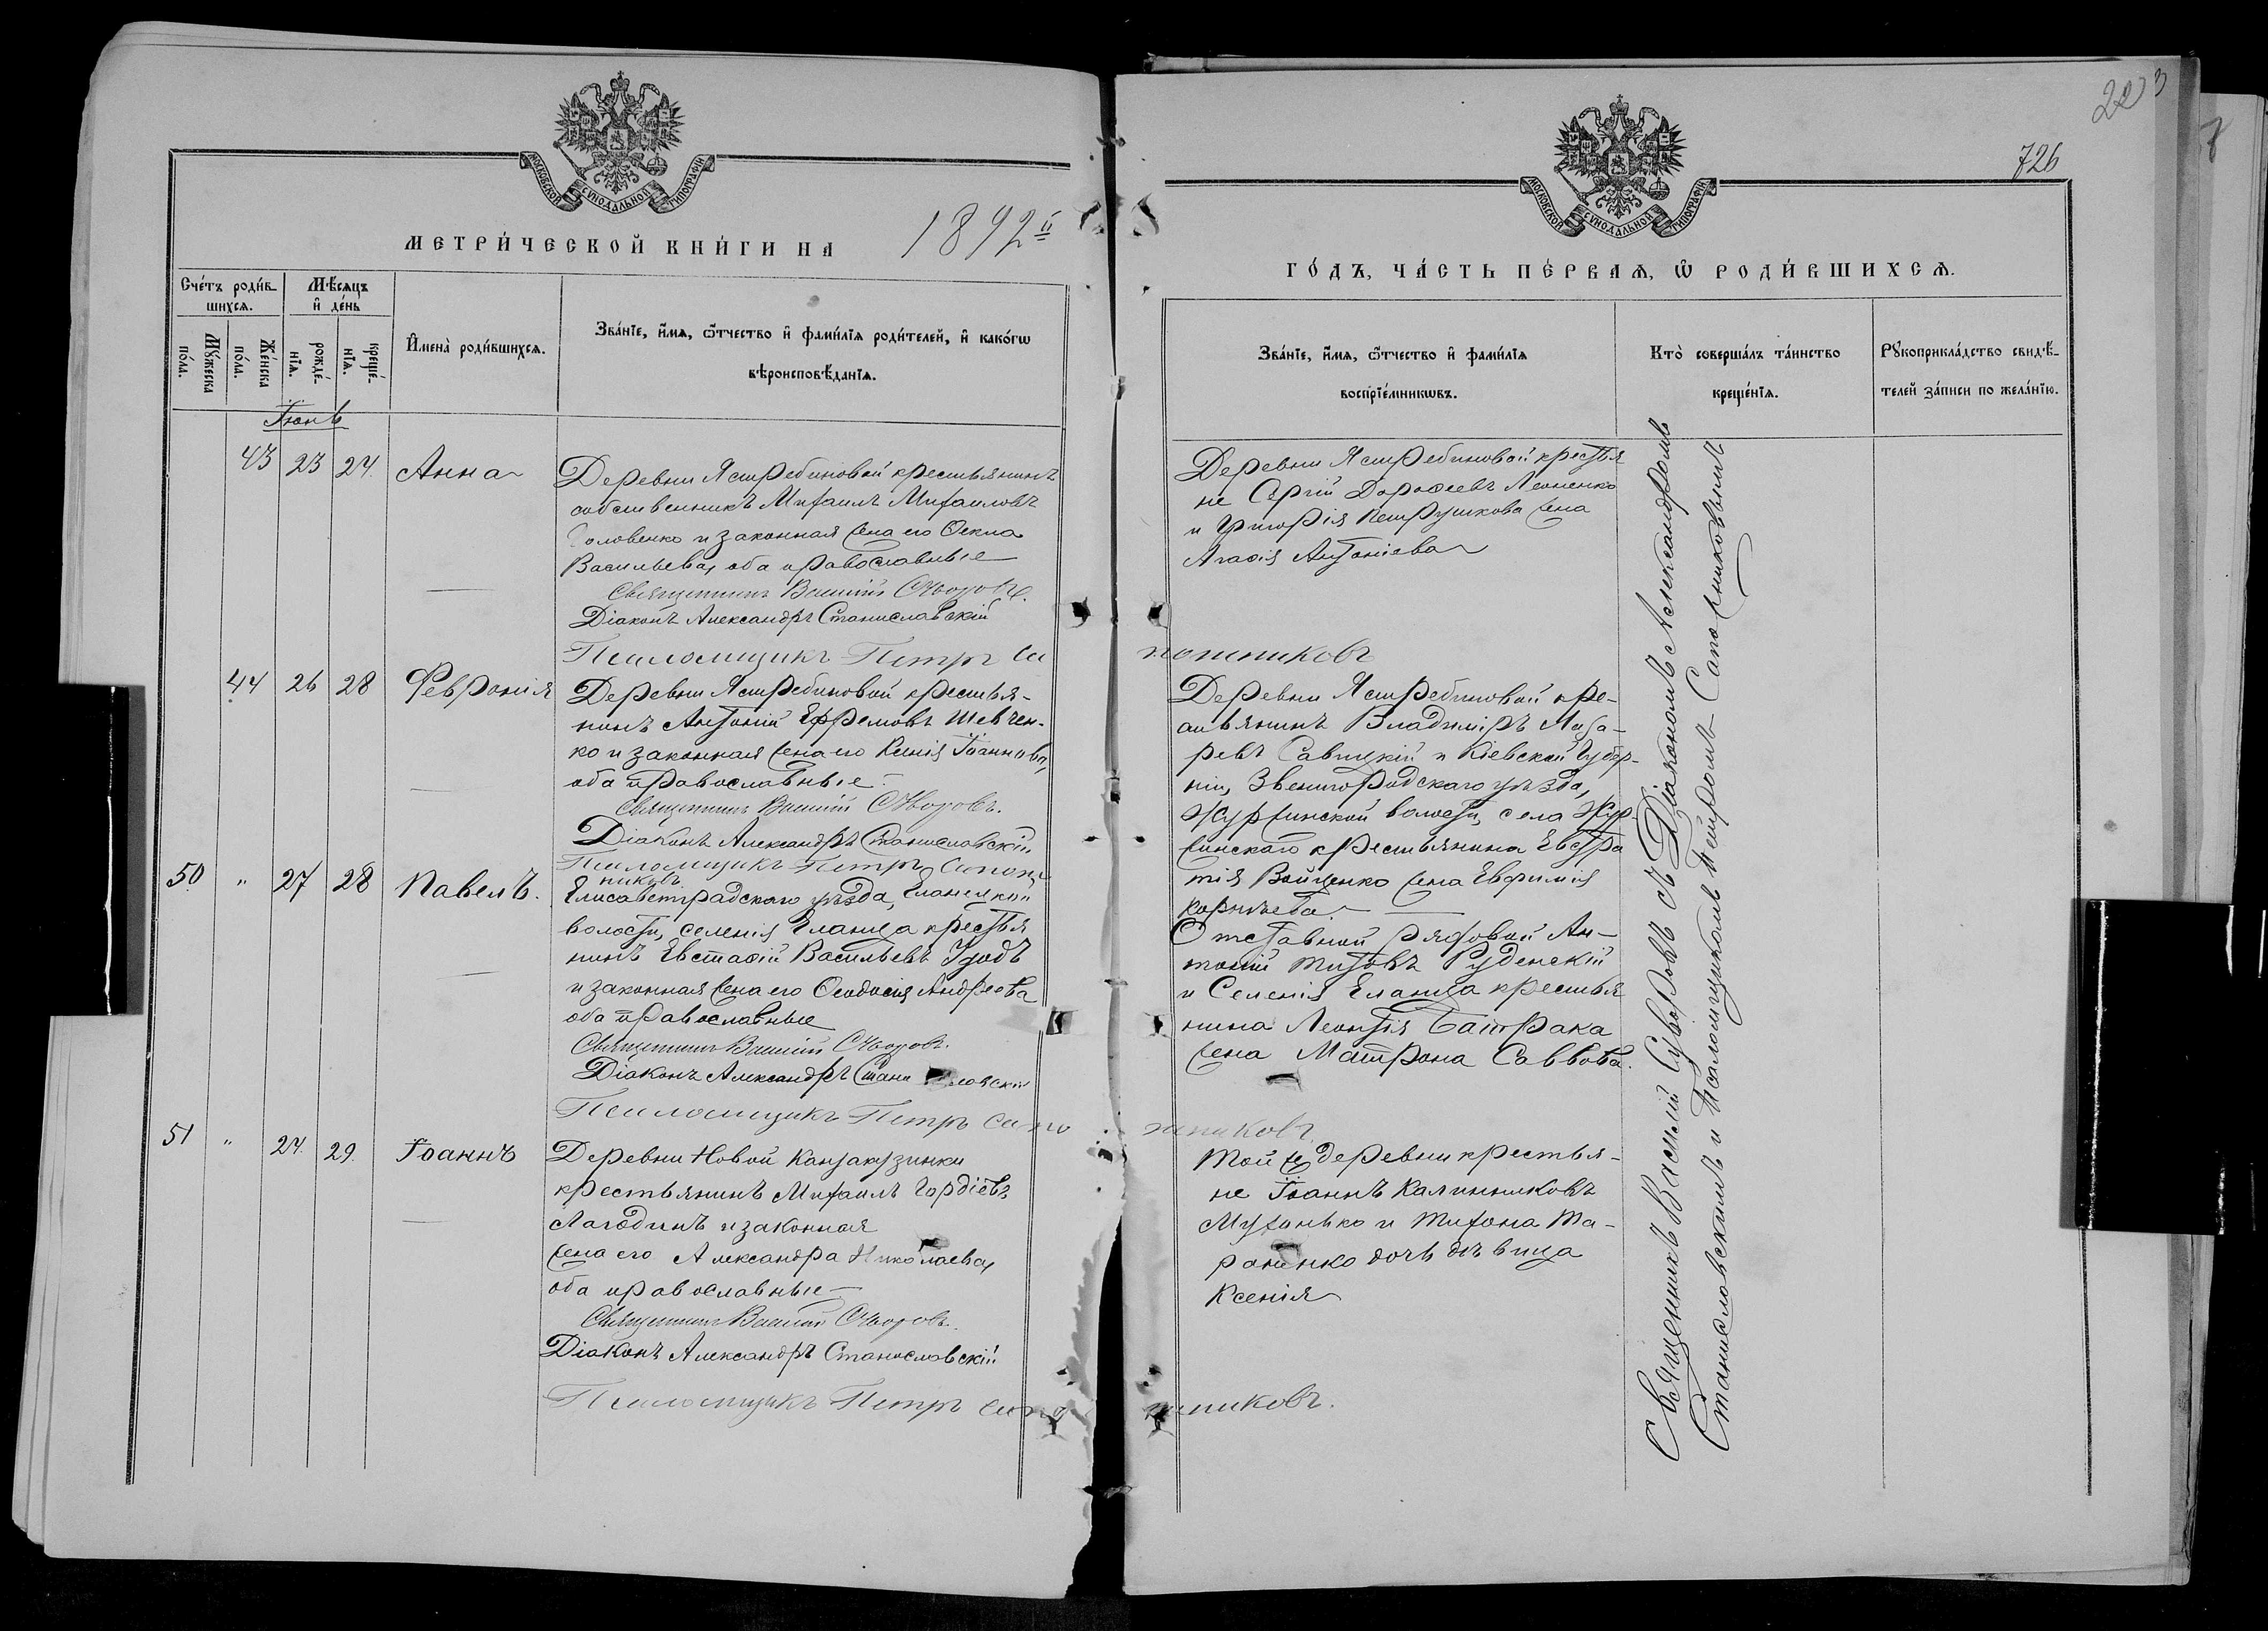 МОСКОВСКОЙ СѴНОДАЛЬНОЙ ТИПОГРАФІИ
МЕТРИ́ЧЕСКОЙ КНИ́ГИ НА 1892й
Сче́тъ роди́в-
шихсѧ.
Мѣ́сяцъ
и҆ де́нь
Мꙋ́жеска
по́ла.
Же́нска
по́ла.
рожде́-
нїѧ.
креще́-
нїѧ.
И҆мена̀ роди́вшихсѧ.
Зва́нїе, и҆́мѧ, ѻ҆́тчество и҆ фами́лїѧ роди́телей, и҆ како́гѡ
вѣроисповѣ́данїѧ.
Іюнь
43 23 24. Анна
Деревни Ястребиновой крестьянинъ
собственникъ Михаилъ Михаиловъ
Головенко и законная жена его Ѳекла
Васильева, оба православные
Священникъ Василій Суворовъ.
Діаконъ Александръ Станиславскій
Псаломщикъ Петръ Сапожниковъ
44 26 28 Февронія
Деревни Ястребиновой крестья-
нинъ Антоній Ефремовъ Шевчен-
ко и законная жена его Ксенія Іоаннова,
оба православные
Священникъ Василій Суворовъ.
Діаконъ Александръ Станиславскій
Псаломщикъ Петръ Сапож
никовъ
50 " 27 28 Павелъ.
Елисаветградского уѣзда, Еланецкой
волости, селенія Еланца крестья
нинъ Евстафій Васильевъ Удодъ
и законная жена его Ѳеодосія Андреева
оба православные
Священникъ Василій Суворовъ.
Діаконъ Александръ Станиславскій
Псаломщикъ Петръ Сапожниковъ
51 " 24. 29. Іоаннъ
Деревни Новой Кантакузинки
крестьянинъ Михаилъ Гордіевъ
Лагодинъ и законная
жена его Александра Николаева,
оба православные
Священникъ Василій Суворовъ.
Діаконъ Александръ Станиславскій
Псаломщикъ Петръ Сапожниковъ.
223
726
7
МОСКОВСКОЙ СѴНОДАЛЬНОЙ ТИПОГРАФІИ
ГО́ДЪ, ЧА́СТЬ ПЕ́РВАѦ, Ѡ҆ РОДИ́ВШИХСѦ.
Зва́нїе, и҆́мѧ, ѻ҆́тчество и҆ фами́лїѧ
воспрїе́мникѡвъ.
Кто̀ соверша́лъ та́инство
креще́нїѧ.
Рꙋкоприкла́дство свидѣ́-
телей за́писи по жела́нїю.
Деревни Ястребиновой крестья
не Сергій Дорофеевъ Леоненко
и Григорія Петрушкова жена
Агафія Антоніева
Деревни Ястребиновой кре-
стьянинъ Владиміръ Лаза-
ревъ Савицкій и Кіевской губер-
ніи, Звенигородскаго уѣзда,
Журжинской волости, села Жур-
жинскаго крестьянина Евстра
тія Войценко жена Евфимія
Корнѣева.
Отставной рядовой Ан-
тоній Титовъ Руденскій
и Селенія Еланца крестья
нина Леонтія Батрака
жена Матрона Саввова.
Той же деревни крестья-
не Іоаннъ Калинниковъ
Мухинько и Тихона Та-
раненко дочь дѣвица
Ксенія
Священникъ Василій Суворовъ съ Діакономъ Александромъ
Станиславскимъ и Псаломщикомъ Петромъ Сапожниковымъ